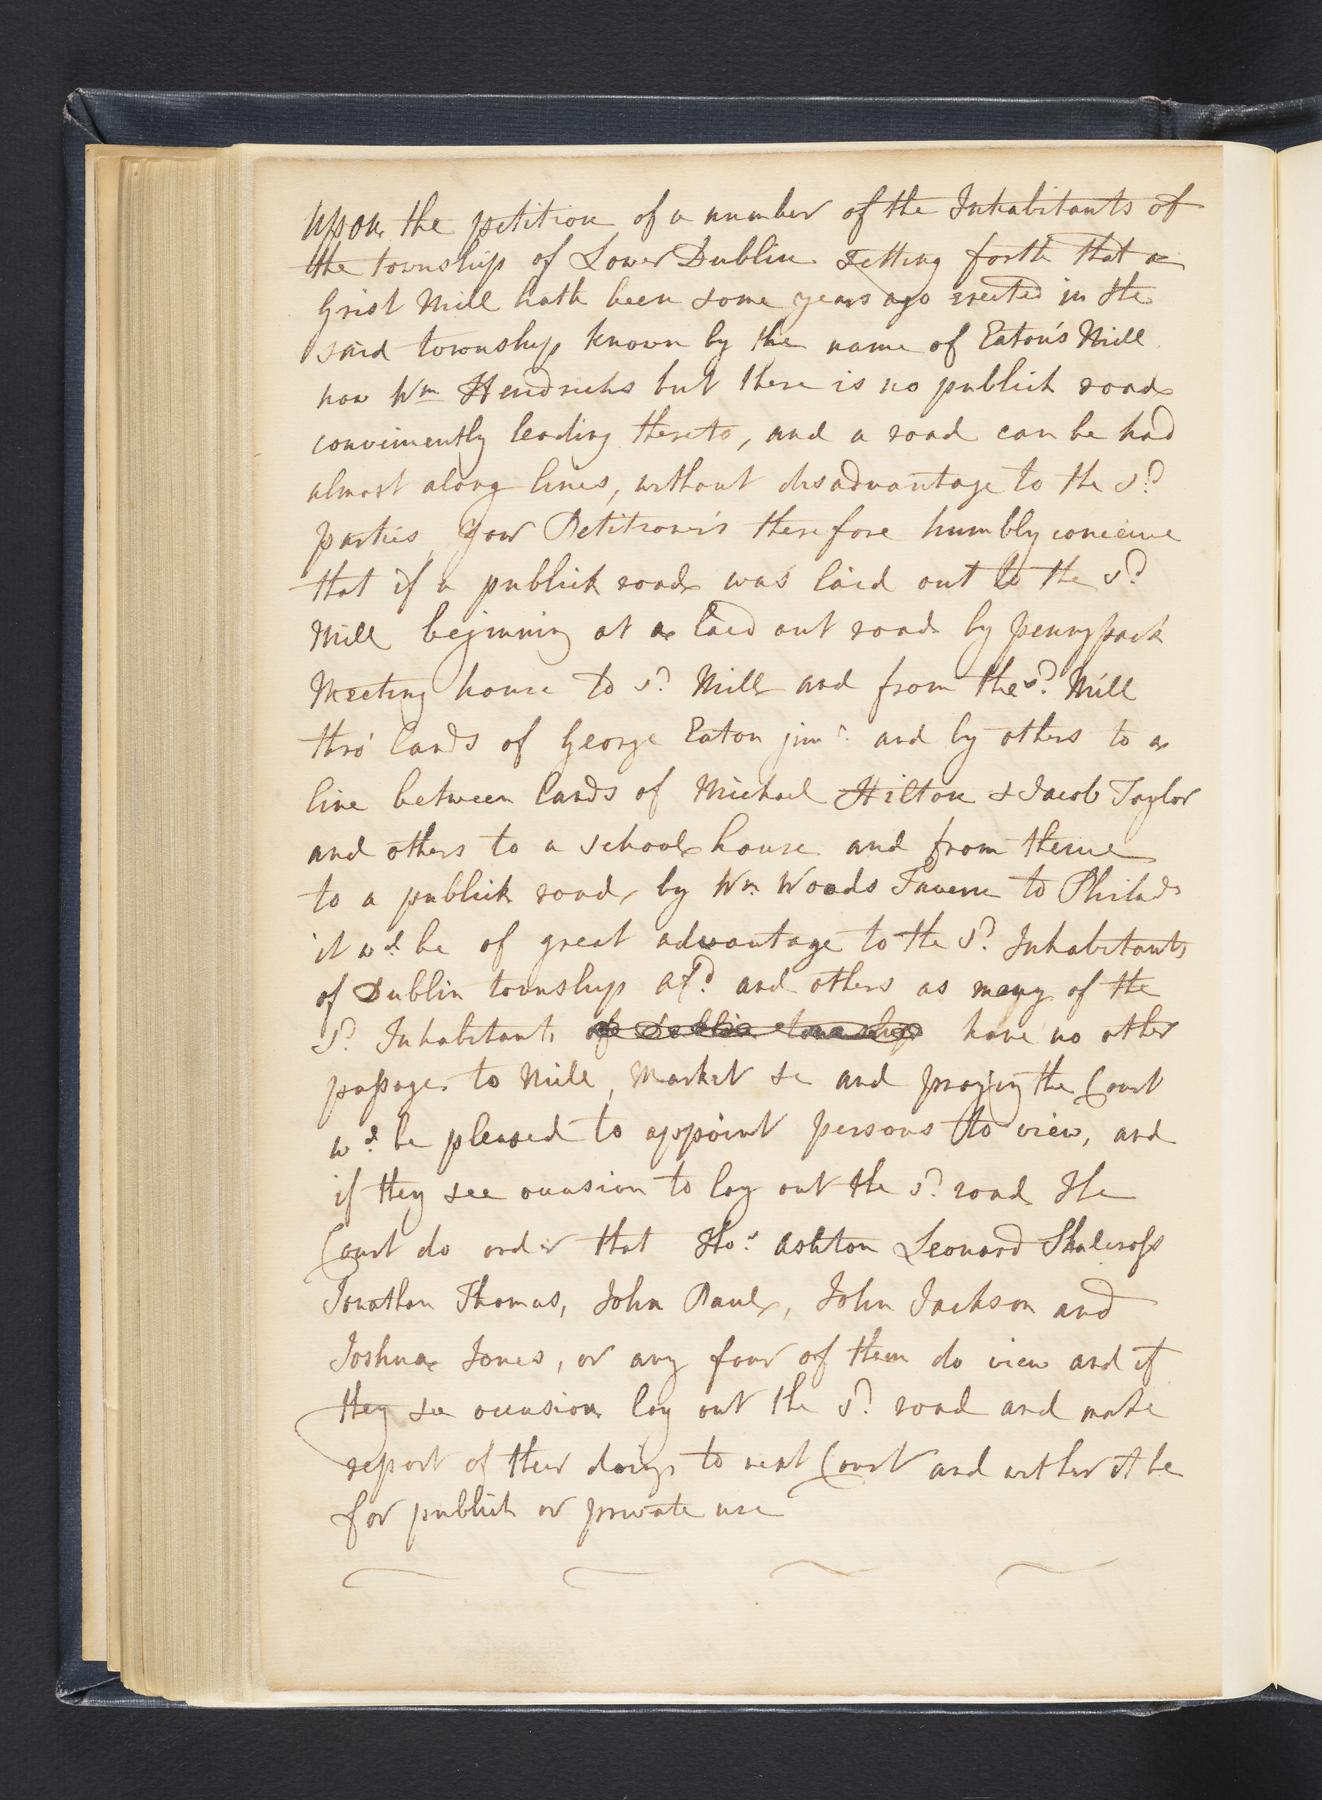 Upon the petition of a number of the Inhabitants of
the township of Lower Dublin setting forth that a
Grist Mill hath been some years ago erected in the
said township known by the name of Eaton's Mill
now Wm Hendricks but there is no publick road
conveniently leading thereto, and a road can be had
almost along lines, without disadvantage to the sd
parties your Petitioners therefore humbly conceive
that if a publick road was laid out to the sd
Mill beginning at a laid out road by pennypack
Meeting house to sd Mill and from the sd Mill
thro' lands of George Eaton junr and by others to a
line between lands of Michael Hilton & Jacob Taylor
and others to a school house and from thence
to a publick road by Wm Woods Tavern to Philada
it wd be of great advantage to the sd Inhabitants
of Dublin township afd and others as many of the
sd Inhabitants of Dublin township have no other
passage to Mill, Market &c and praying the Court
wd be pleased to appoint persons to view, and
if they see occasion to lay out the sd road The
Court do order that Thos Ashton Leonard Shalcross
Jonathan Thomas, John Paul, John Jackson and
Joshua Jones, or any four of them do view and if
they see occasion lay out the sd road and make
report of their doings to next Court and wether it be
for publick or private use